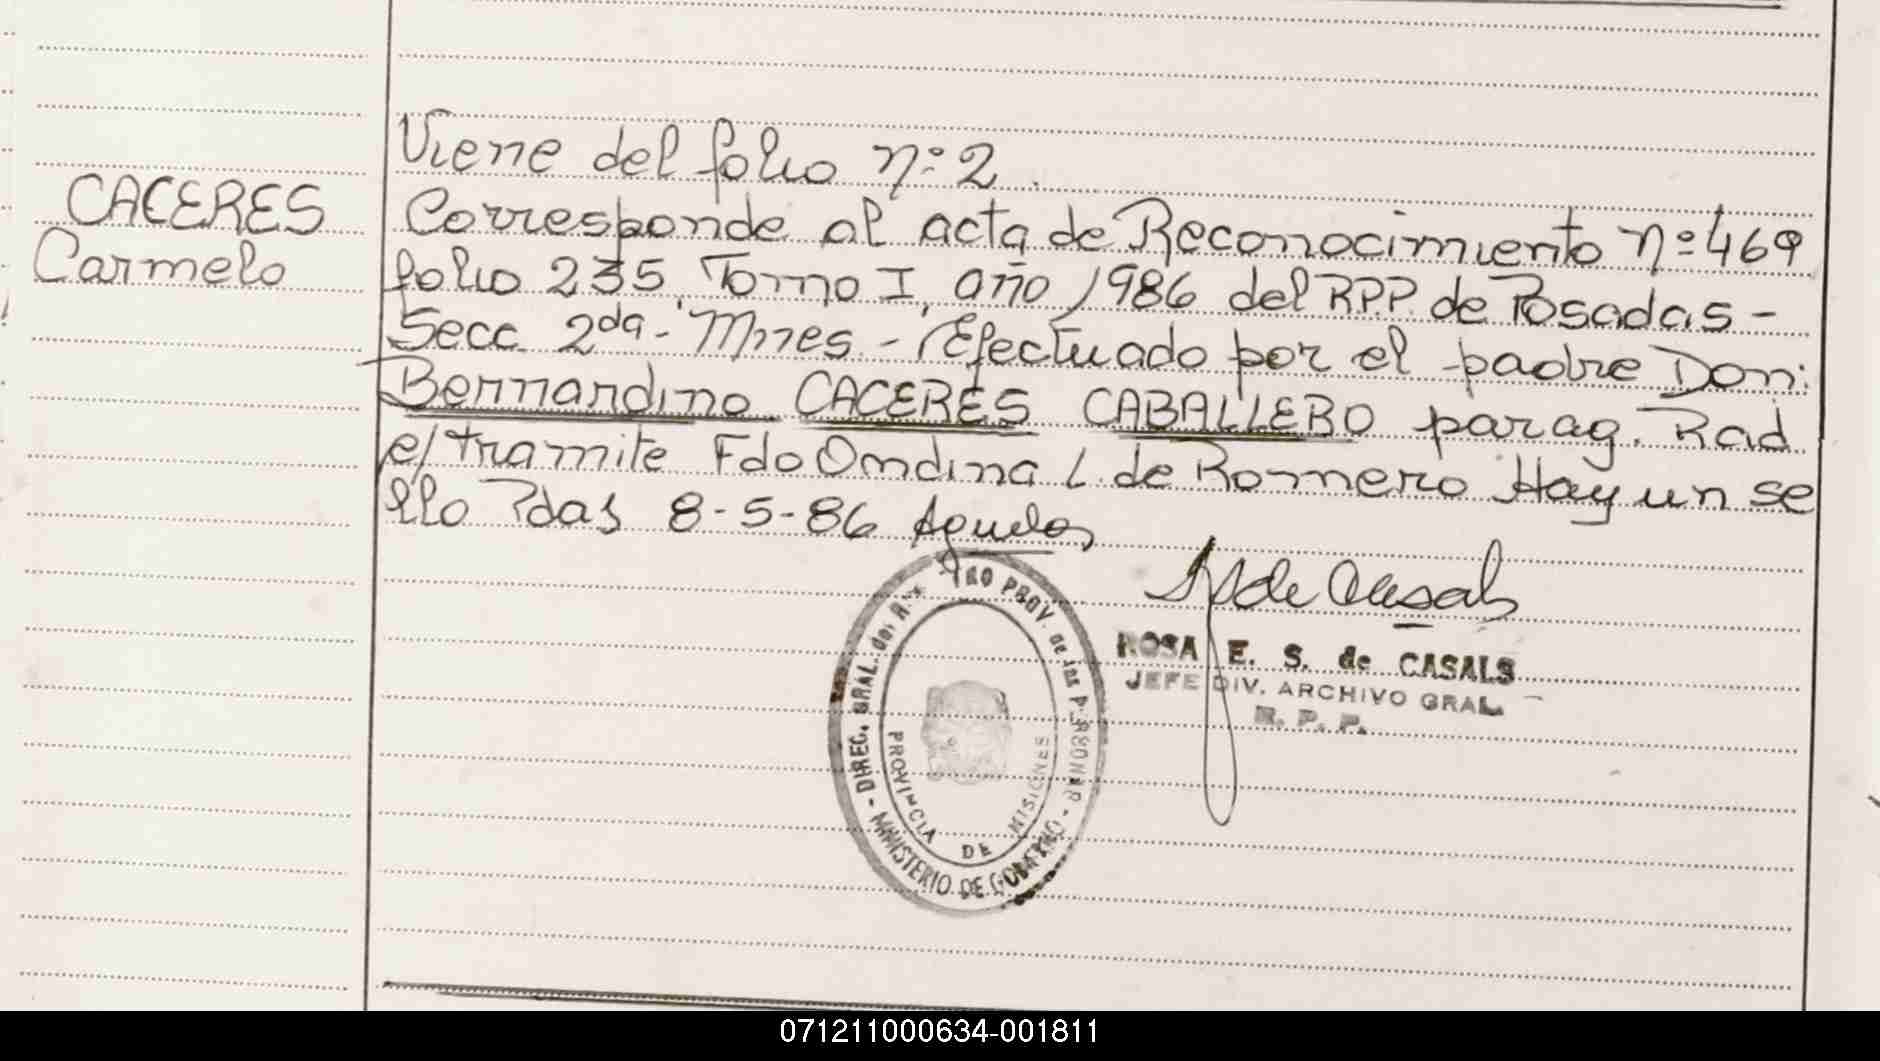 CACERES
Carmelo
Viene del folio nº 2.
Corresponde al acta de Reconocimiento nº 469
folio 235, Tomo I, año 1986 del RPP. de Posadas -
Secc. 2da - Mnes. - Efectuado por el padre Don:
Bernardino CACERES CABALLERO parag. Rad
e/tramite Fdo Ondina L. de Romero Hay un se
llo Pdas 8-5-86
de Casals
ROSA E. S. de CASALS
JEFE DIV. ARCHIVO GRAL.
R. P. P.
DIREC. GRAL. del PROV. de las PERSONAS
MINISTERIO DE GOBIERNO
PROVINCIA DE MISIONES
071211000634-001811